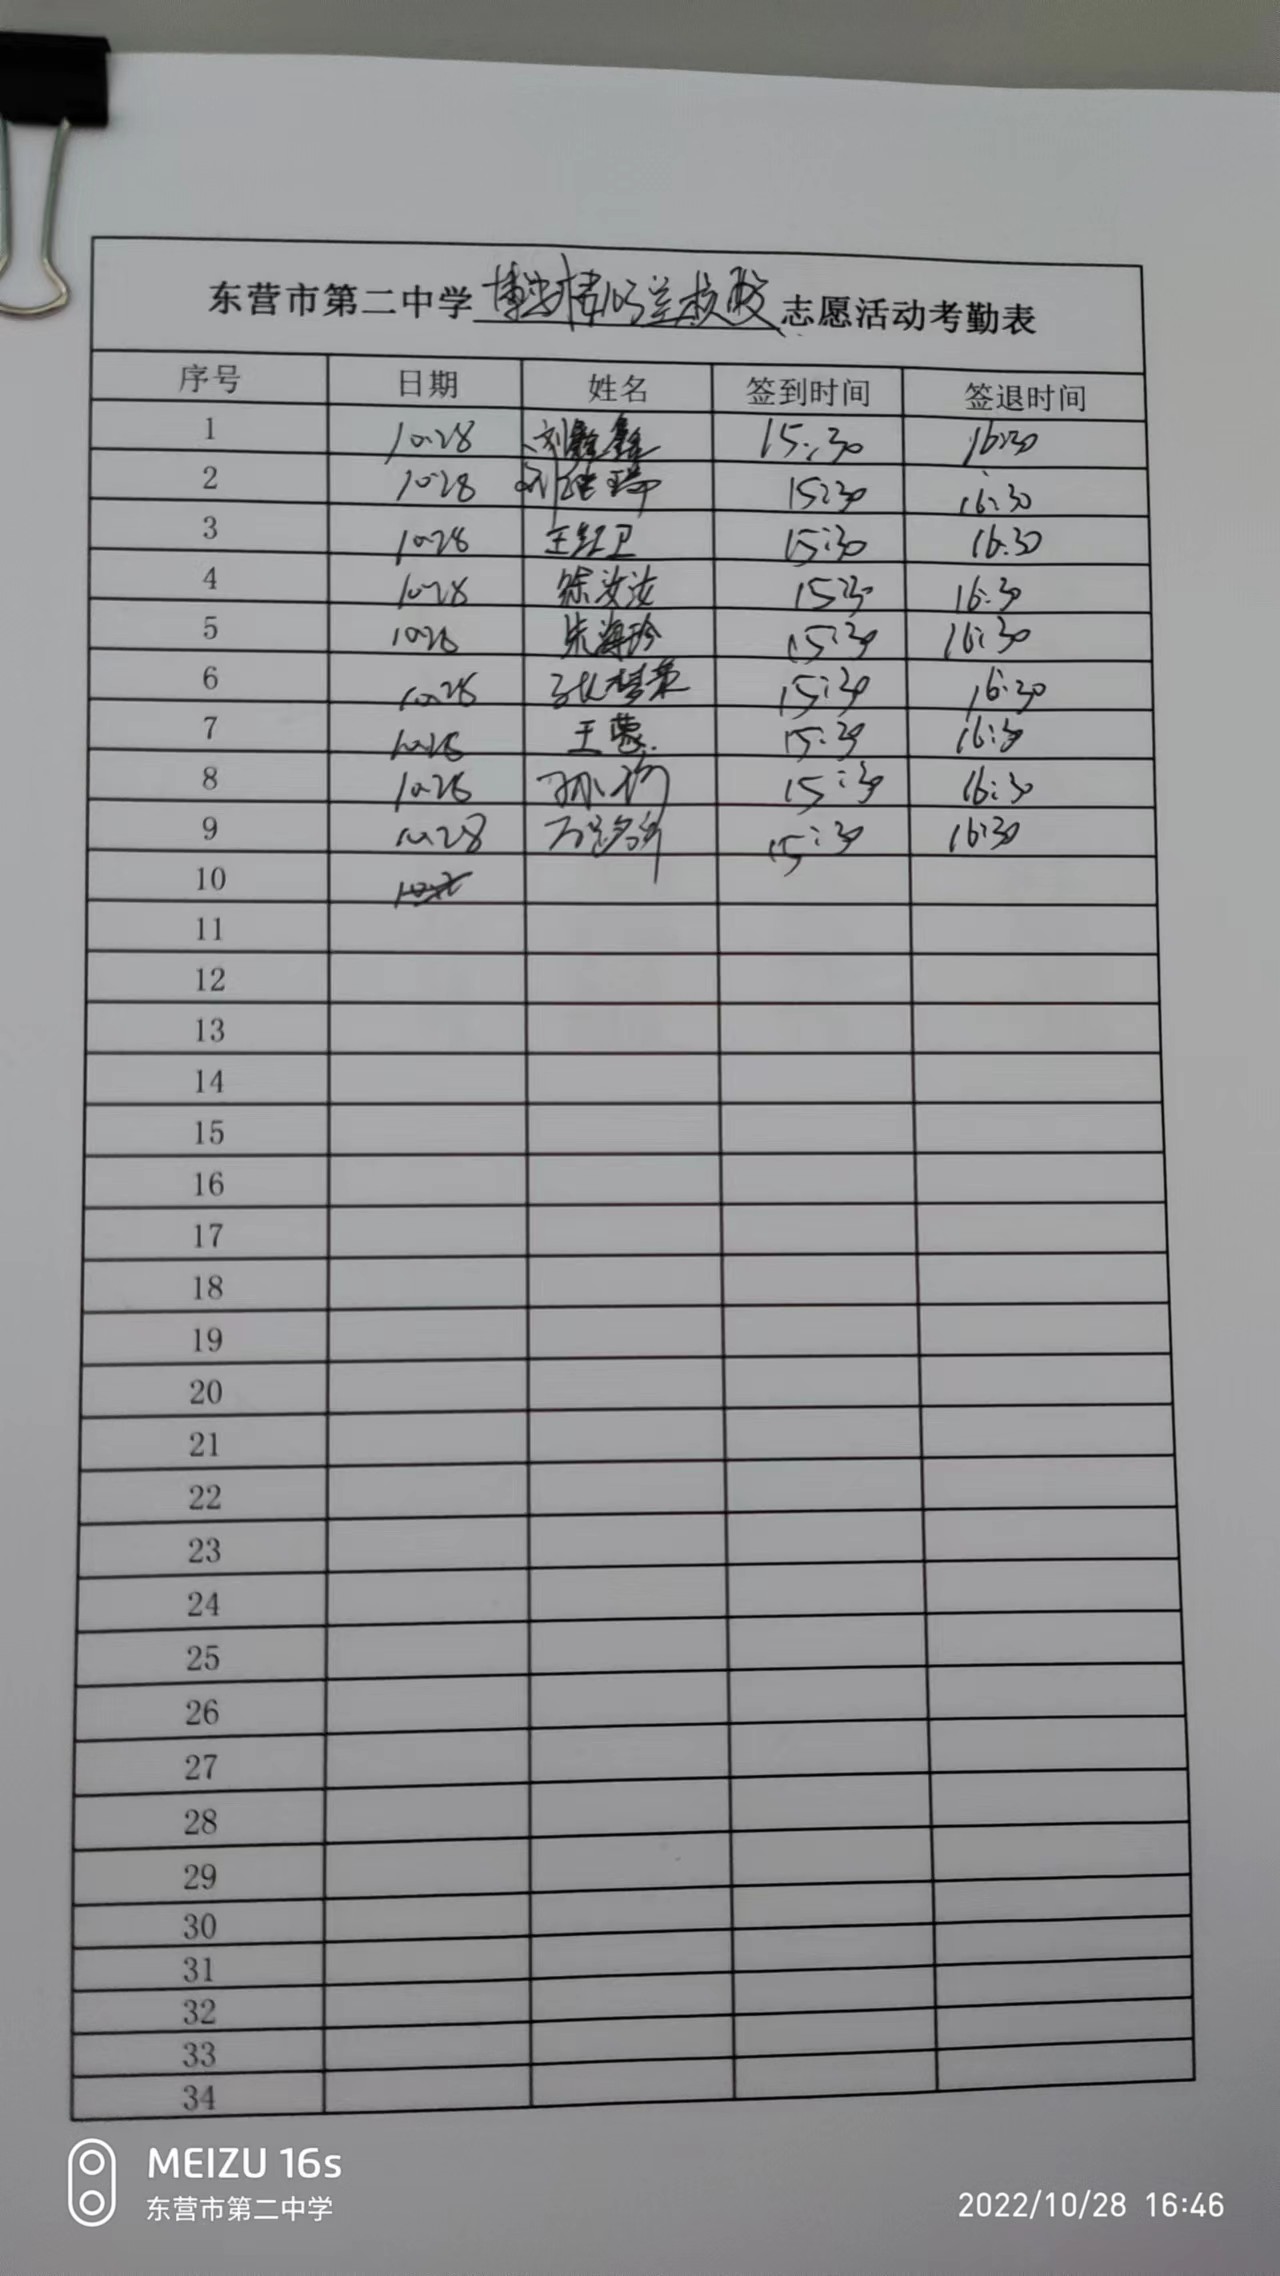 东营市第二中学 核酸 志愿活动考勤表
序号 日期 姓名 签到时间 签退时间
1 10.28 刘鑫鑫 15:30 16:30
2 10.28 15:30 16:30
3 10.28 王红卫 15:30 16:30
4 10.28 徐汝汝 15:30 16:30
5 10.28 朱海玲 15:30 16:30
6 10.28 张梦荣 15:30 16:30
7 10.28 王蒙 15:30 16:30
8 10.28 孙 15:30 16:30
9 10.28 15:30 16:30
10
11
12
13
14
15
16
17
18
19
20
21
22
23
24
25
26
27
28
29
30
31
32
33
34
MEIZU 16s
东营市第二中学
2022/10/28 16:46